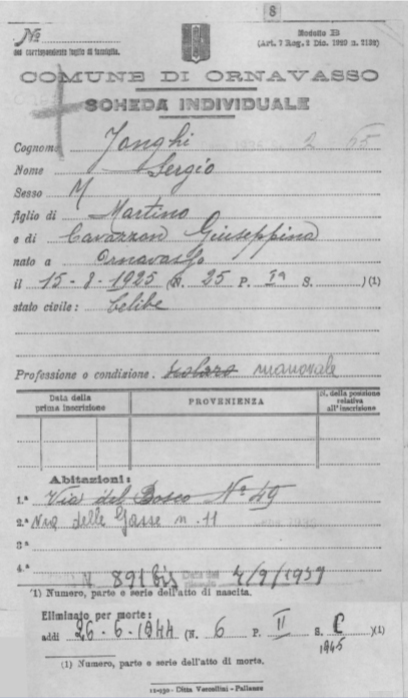 8
N.°
sul corrispondente foglio di famiglia.
Modello
(Art. 7 Reg. 2 Dic. 1929 n. 2132)
COMUNE DI ORNAVASSO
SCHEDA INDIVIDUALE
Cognome Jonghi
Nome Sergio
Sesso M
figlio di Martino
e di Cavazzon Giuseppina
nato a Ornavasso
il 15-8-1925 (N. 25 P. Iª S. )(1)
stato civile: Celibe
Professione o condizione. scolaro manovale
Data della prima inscrizione
PROVENIENZA
N. della posizione relativa all'inscrizione
Abitazioni:
1.ª Via del Bosco Nº 49
2.ª Via delle Gasse n. 11
3.ª
4.ª
N. 891 bis Data del 4/9/1959
(1) Numero, parte e serie dell'atto di nascita.
Eliminato per morte:
addì 26-6-1944 (N. 6 P. II S. C )(1)
1945
(1) Numero, parte e serie dell'atto di morte.
12-930- Ditta Vercellini - Pallanza